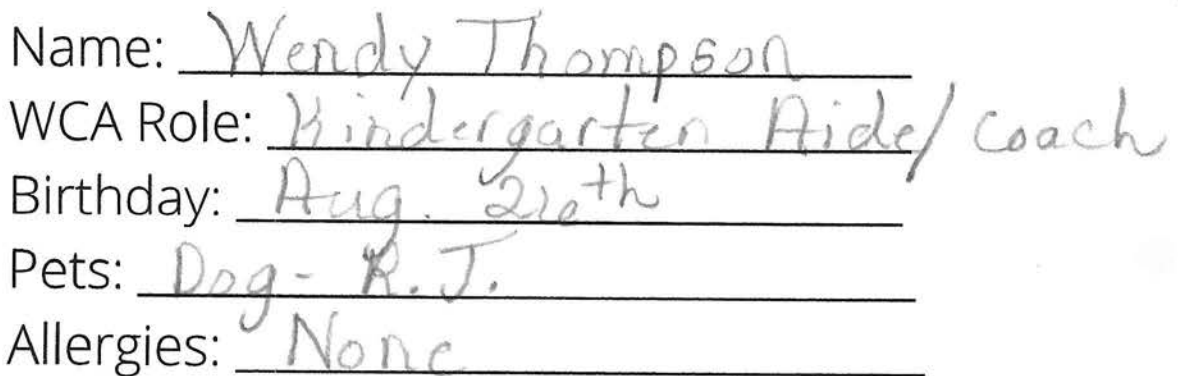 Name: Wendy Thompson
WCA Role: Kindergarten Aide/Coach
Birthday: Aug. 26th
Pets: Dog - R.J.
Allergies: None